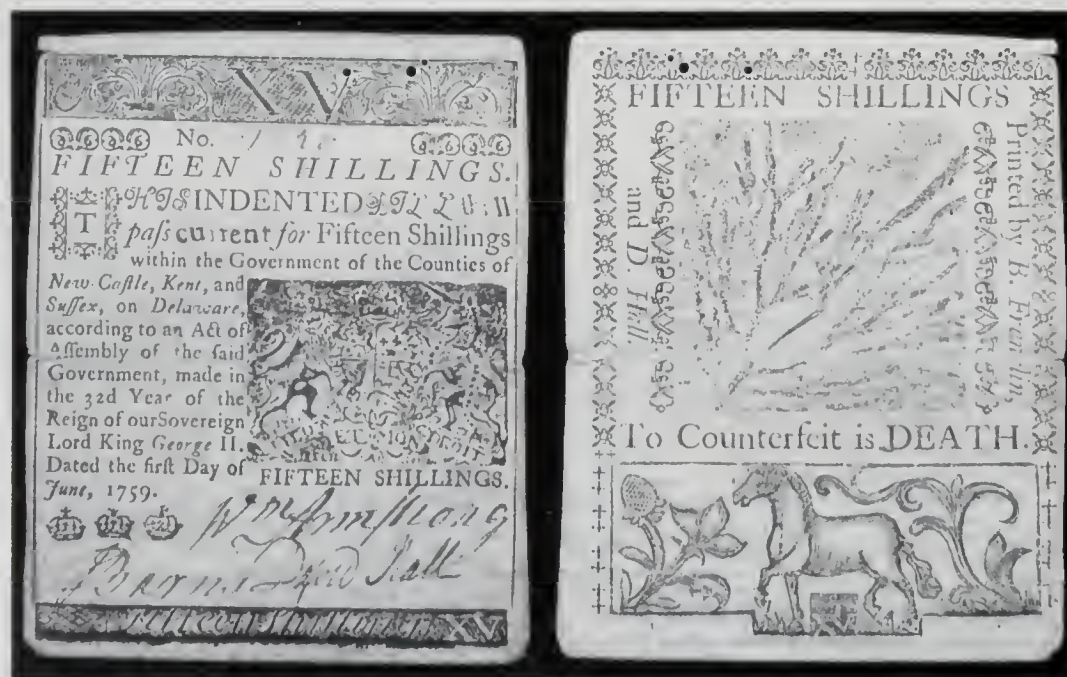 XV
No.
FIFTEEN SHILLINGS.
THIS INDENTED BILL shall
paſs current for Fifteen Shillings
within the Government of the Counties of
New-Caſtle, Kent, and
Suſſex, on Delaware,
according to an Act of
Aſſembly of the ſaid
Government, made in
the 32d Year of the
Reign of ourSovereign
Lord King George II.
Dated the firſt Day of
June, 1759.
ET MON DROIT
FIFTEEN SHILLINGS.
Wm Armſtrong
David Hall
Fifteen Shillings. XV
FIFTEEN SHILLINGS
Printed by B. Franklin
and D. Hall
To Counterfeit is DEATH.
XV